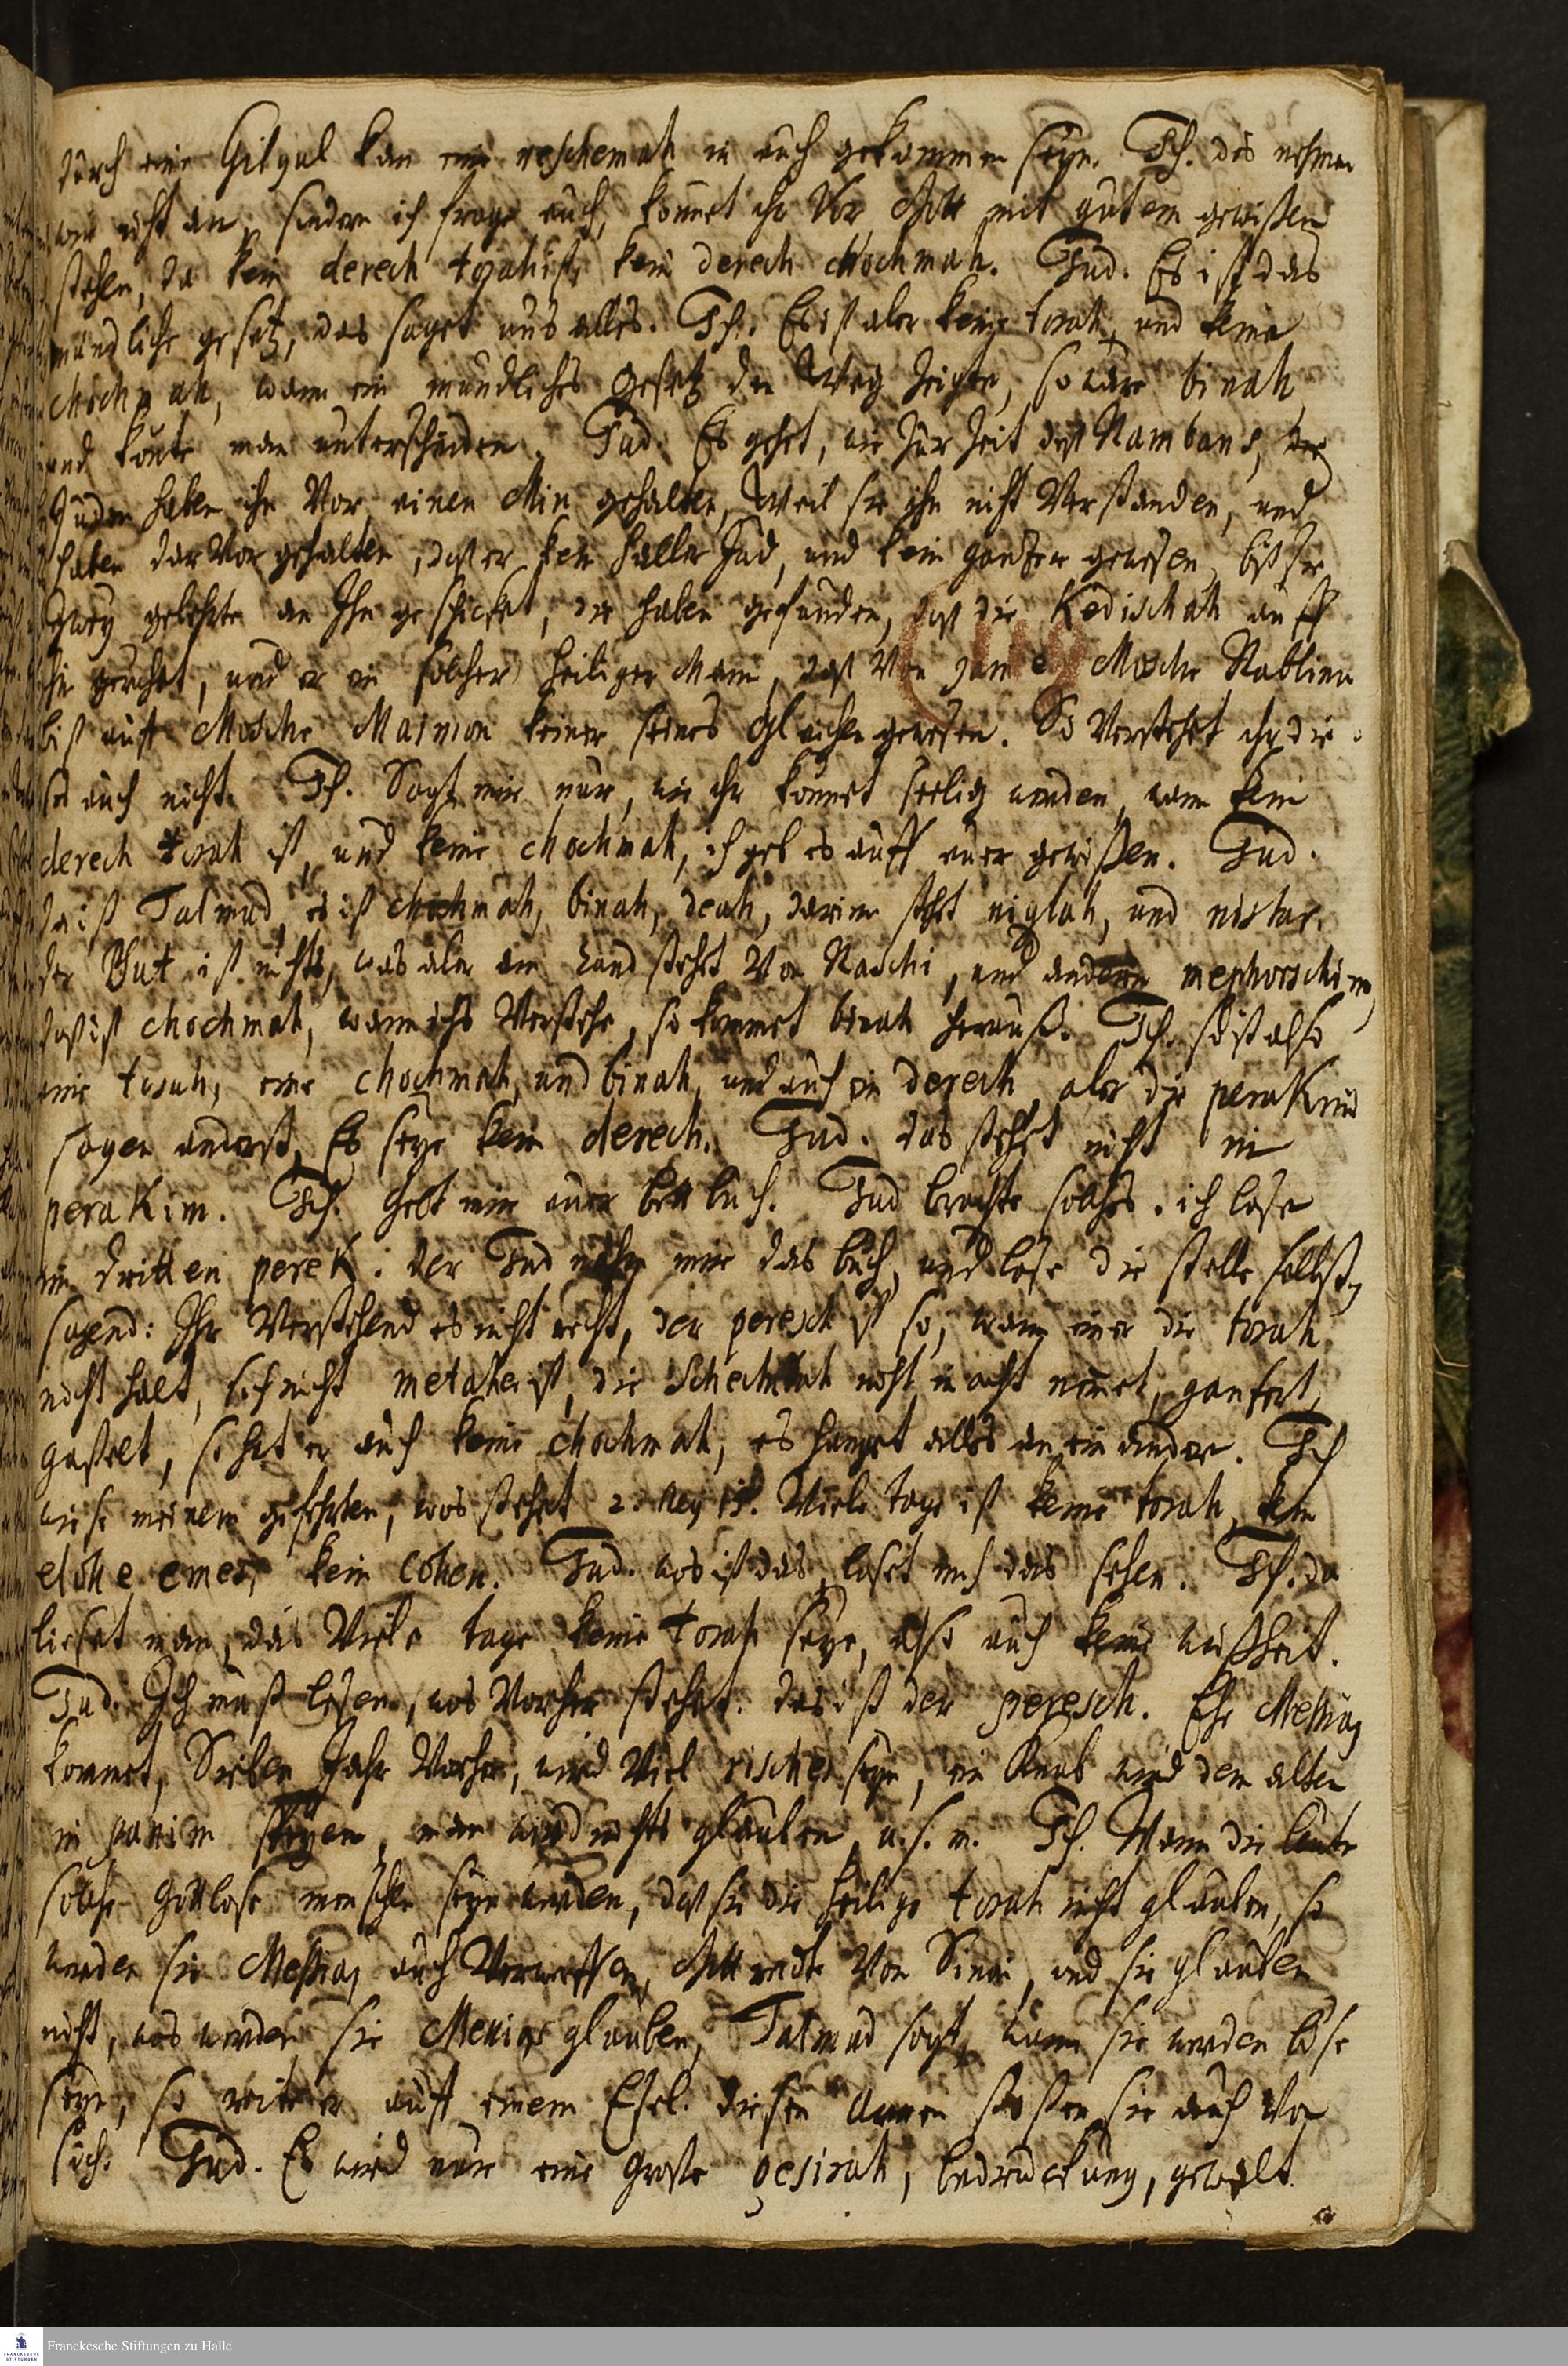 durch eine Gilgul kan eine neschemah in euch gekommen seyn. Ich. das nehmen
wir nicht an, sondern ich frage euch, könnet ihr Vor Gott mit gutem gewißen
stehen, da kein derech torah ist, kein derech chochmah. Jud. Es ist das
mündliche gesetz, das saget uns alles. Ich. Es ist aber keine torah, und keine
chochmah, wann ein mündliches Gesetz den Weg zeigte, so wäre binah
und könte man unterscheiden. Jud. Es gehet, wie zur Zeit deß Rambans, die
Juden haben ihn Vor einen Min gehalten, Weil sie ihn nicht Verstanden, und
haben darVor gehalten, daß er kein halber Jud, und kein gantzer gewesen, biß sie
zwey gelehrte an Ihn geschicket, die haben gefunden, daß die Kedischah auff
ihn geruhet, und er ein solcher heiliger Mann, daß Von dem Mosche Rabbenu
biß auff Mosche Maimon keiner seines Gleichen gewesen. So Verstehet ihr die
ses auch nicht. Ich. Sagt mir nur, wie ihr könnet seelig werden, wann kein
derech torah ist, und keine chochmah, ich geb es auff euer gewißen. Jud.
da ist Talmud, es ist chochmah, binah, deah, darinn steht niglah, und nistar.
der ist nichts, was aber am Rand stehet Von Raschi, und andern mephorschim
daß ist chochmah, wann ichs Verstehe, so kommet binah herauß. Ich. so ist also
eine torah, eine chochmah, und binah, und auch ein derech, aber die perakim
sagen anderst, Es seye kein derech. Jud. das stehet nicht in
perakim. Ich. Gebt mir euer bettbuch. Jud brachte solches. ich lase
im dritten perek: der Jud nahm mir das buch, und lase die stelle selbst,
sagend: Ihr Verstehend es nicht recht, der peresch ist so, wann einer die torah
nicht halt, sich nicht metaher ist, die Schechitah nicht in acht nimmet, ganfert,
gaßelt, so hat er auch keine chochmah, es hanget alles an einander. Ich
wiese meinem gefehrten, was stehet 2. Reg 15. Viele tage ist keine torah, kein
elohe emes, kein cohen. Jud. was ist das, laset mich das sehen. Ich. da
lieset man, das Viele tage keine torah seye, also auch keine weißheit.
Jud. Ich muß lesen, was Vorher stehet. das ist der peresch. Ehe Messias
kommet, Sieben Jahr Vorher, wird Viel risches seyn, ein Knab wird dem alten
in panim speyen, man wird nichts glauben, u.s.w. Ich. Wann die leute
solche Gottlose menschen seyn werden, daß sie die heilige torah nicht glauben, so
werden sie Messias auch Verwerffen, Gott redte Von Sinai, und sie glauben
nicht, was werden sie Messias glauben, Talmud sagt, wann sie werden böse
seyn, so reite er auff einem Esel. diesen Armen stoßen sie auch Von
sich. Jud. Es wird nur eine Große gesirah, bedruckung, gewalt
Franckesche Stiftungen zu Halle